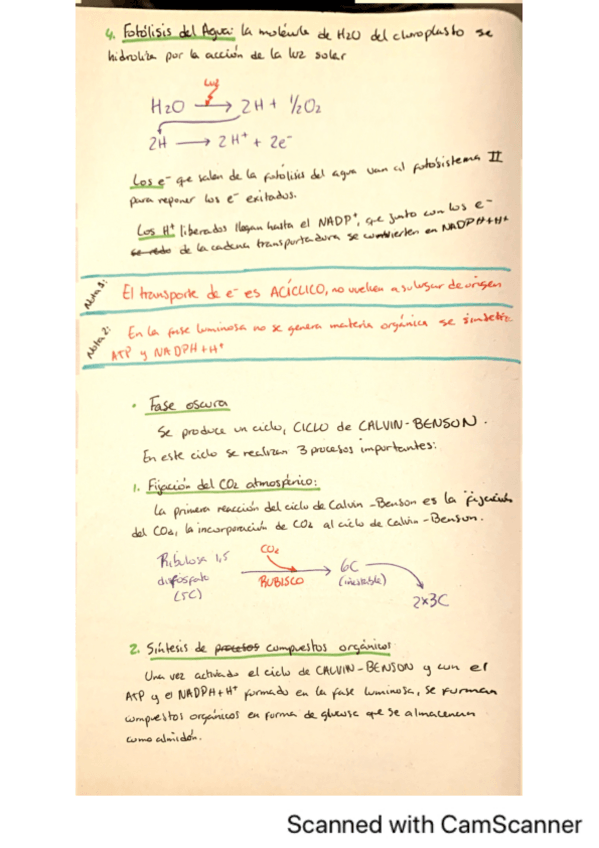 4. Fotólisis del Agua: la molécula de H2O del cloroplasto se
hidroliza por la acción de la luz solar
Luz
H2O → 2H + 1/2O2
2H → 2H+ + 2e-
Los e- que salen de la fotólisis del agua van al fotosistema II
para reponer los e- exitados.
Los H+ liberados llegan hasta el NADP+, que junto con los e-
de la cadena transportadora se convierten en NADPH+H+
Nota 1:
El transporte de e- es ACÍCLICO, no vuelven a su lugar de origen
Nota 2:
En la fase luminosa no se genera materia orgánica se sintetiza
ATP y NADPH+H+
· Fase oscura
Se produce un ciclo, CICLO de CALVIN-BENSON.
En este ciclo se realizan 3 procesos importantes:
1. Fijación del CO2 atmosférico:
La primera reacción del ciclo de Calvin-Benson es la fijación
del CO2, la incorporación de CO2 al ciclo de Calvin-Benson.
Ribulosa 1,5
difosfato
(5C)
CO2
RUBISCO
6C
(inestable)
2x3C
2. Síntesis de procesos compuestos orgánicos
Una vez activado el ciclo de CALVIN-BENSON y con el
ATP y el NADPH+H+ formado en la fase luminosa, se forman
compuestos orgánicos en forma de glucosa que se almacenan
como almidón.
Scanned with CamScanner